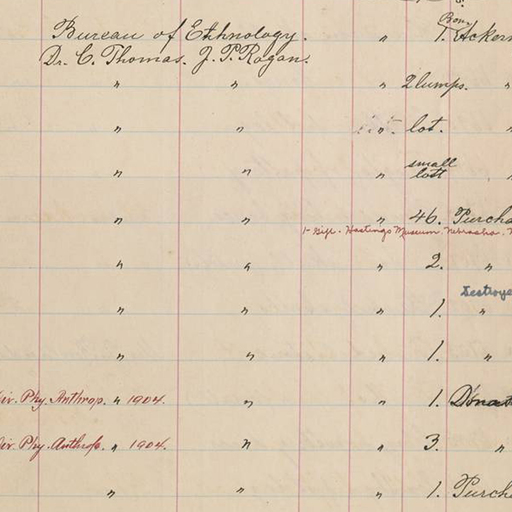 Bureau of Ethnology. " 1. Bony
Dr. C. Thomas. J. P. Rogan.
" " " 2 lumps. "
" " " lot. "
small
" " " lott "
" " " 46. Purcha
1- Gift - Hastings Museum Nebraska.
" " " 2. "
Destroye
" " " 1. "
" " " 1. "
iv. Phy. Anthrop. " 1904. " " 1. Donat
iv. Phy. Anthrop. " 1904. " " 3. "
" " " 1. Purch